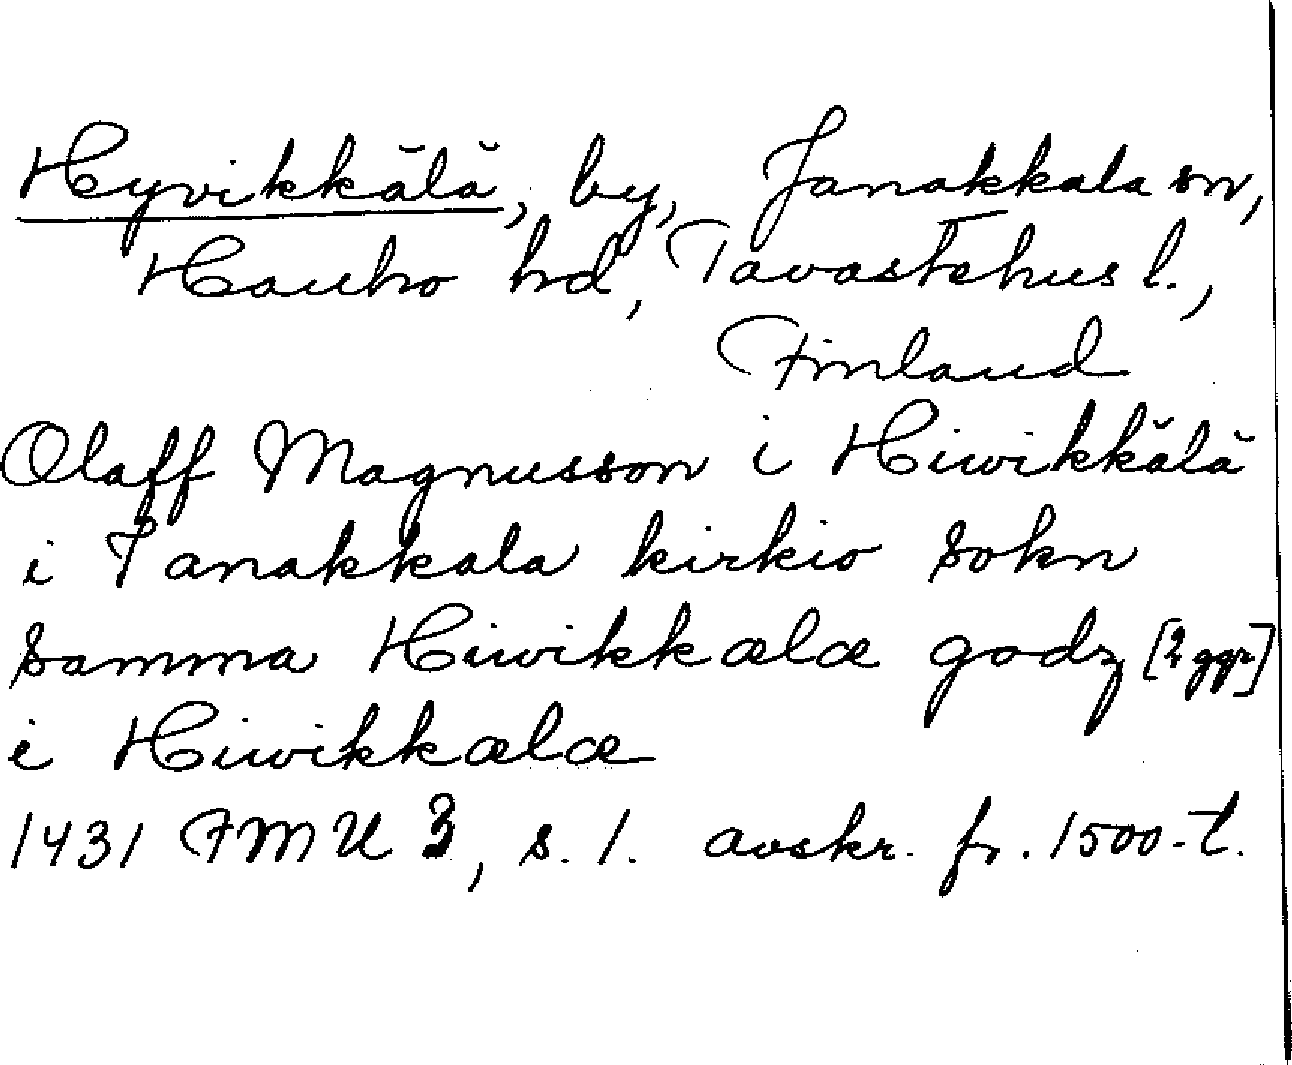 Hyvikkälä, by, Janakkala sn,
Hauho hd, Tavastehus l.,
Finland
Olaff Magnusson i Hiwikkälä
i Janakkala kirkio sokn
samma Hiwikkælæ godz [2 ggr]
i Hiwikkælæ
1431 FMU 3, s. 1. avskr. fr. 1500-t.